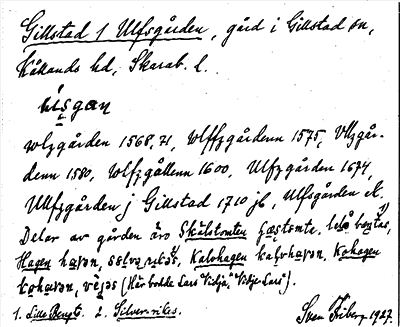 Gillstad 1 Ulfsgården, gård i Gillstad sn,
Kållands hd, Skarab. l.
úlsgan
wlzgården 1568, 71, Wlffzgårdenn 1575, Vllzgår-
denn 1580, Wlffzgålenn 1600, Ulfzgården 1674,
Ulffzgården j Gillstad 1710 jb, Ulfsgården ek.
Delar av gården äro Skälstomten
Hagen haγən, Kalvhagen kalvhaγən, Kohagen
kohaγən, (Här bodde Lars "Vidja", "Vidje-Lars").
1. Lille Bengts. 2. Silver-rikes. Sven Friberg 1927.